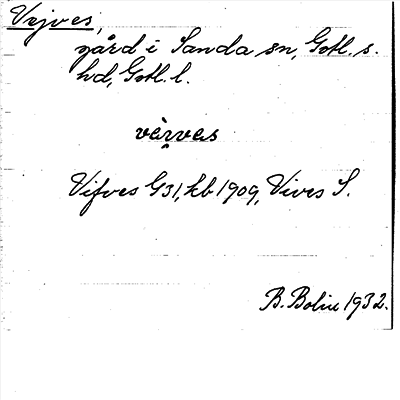 Vijves,
gård i Sanda sn, Gotl. s.
hd, Gotl. l.
vèrves
Vifves G31, kb 1909, Vives S.
B. Bolin 1932.